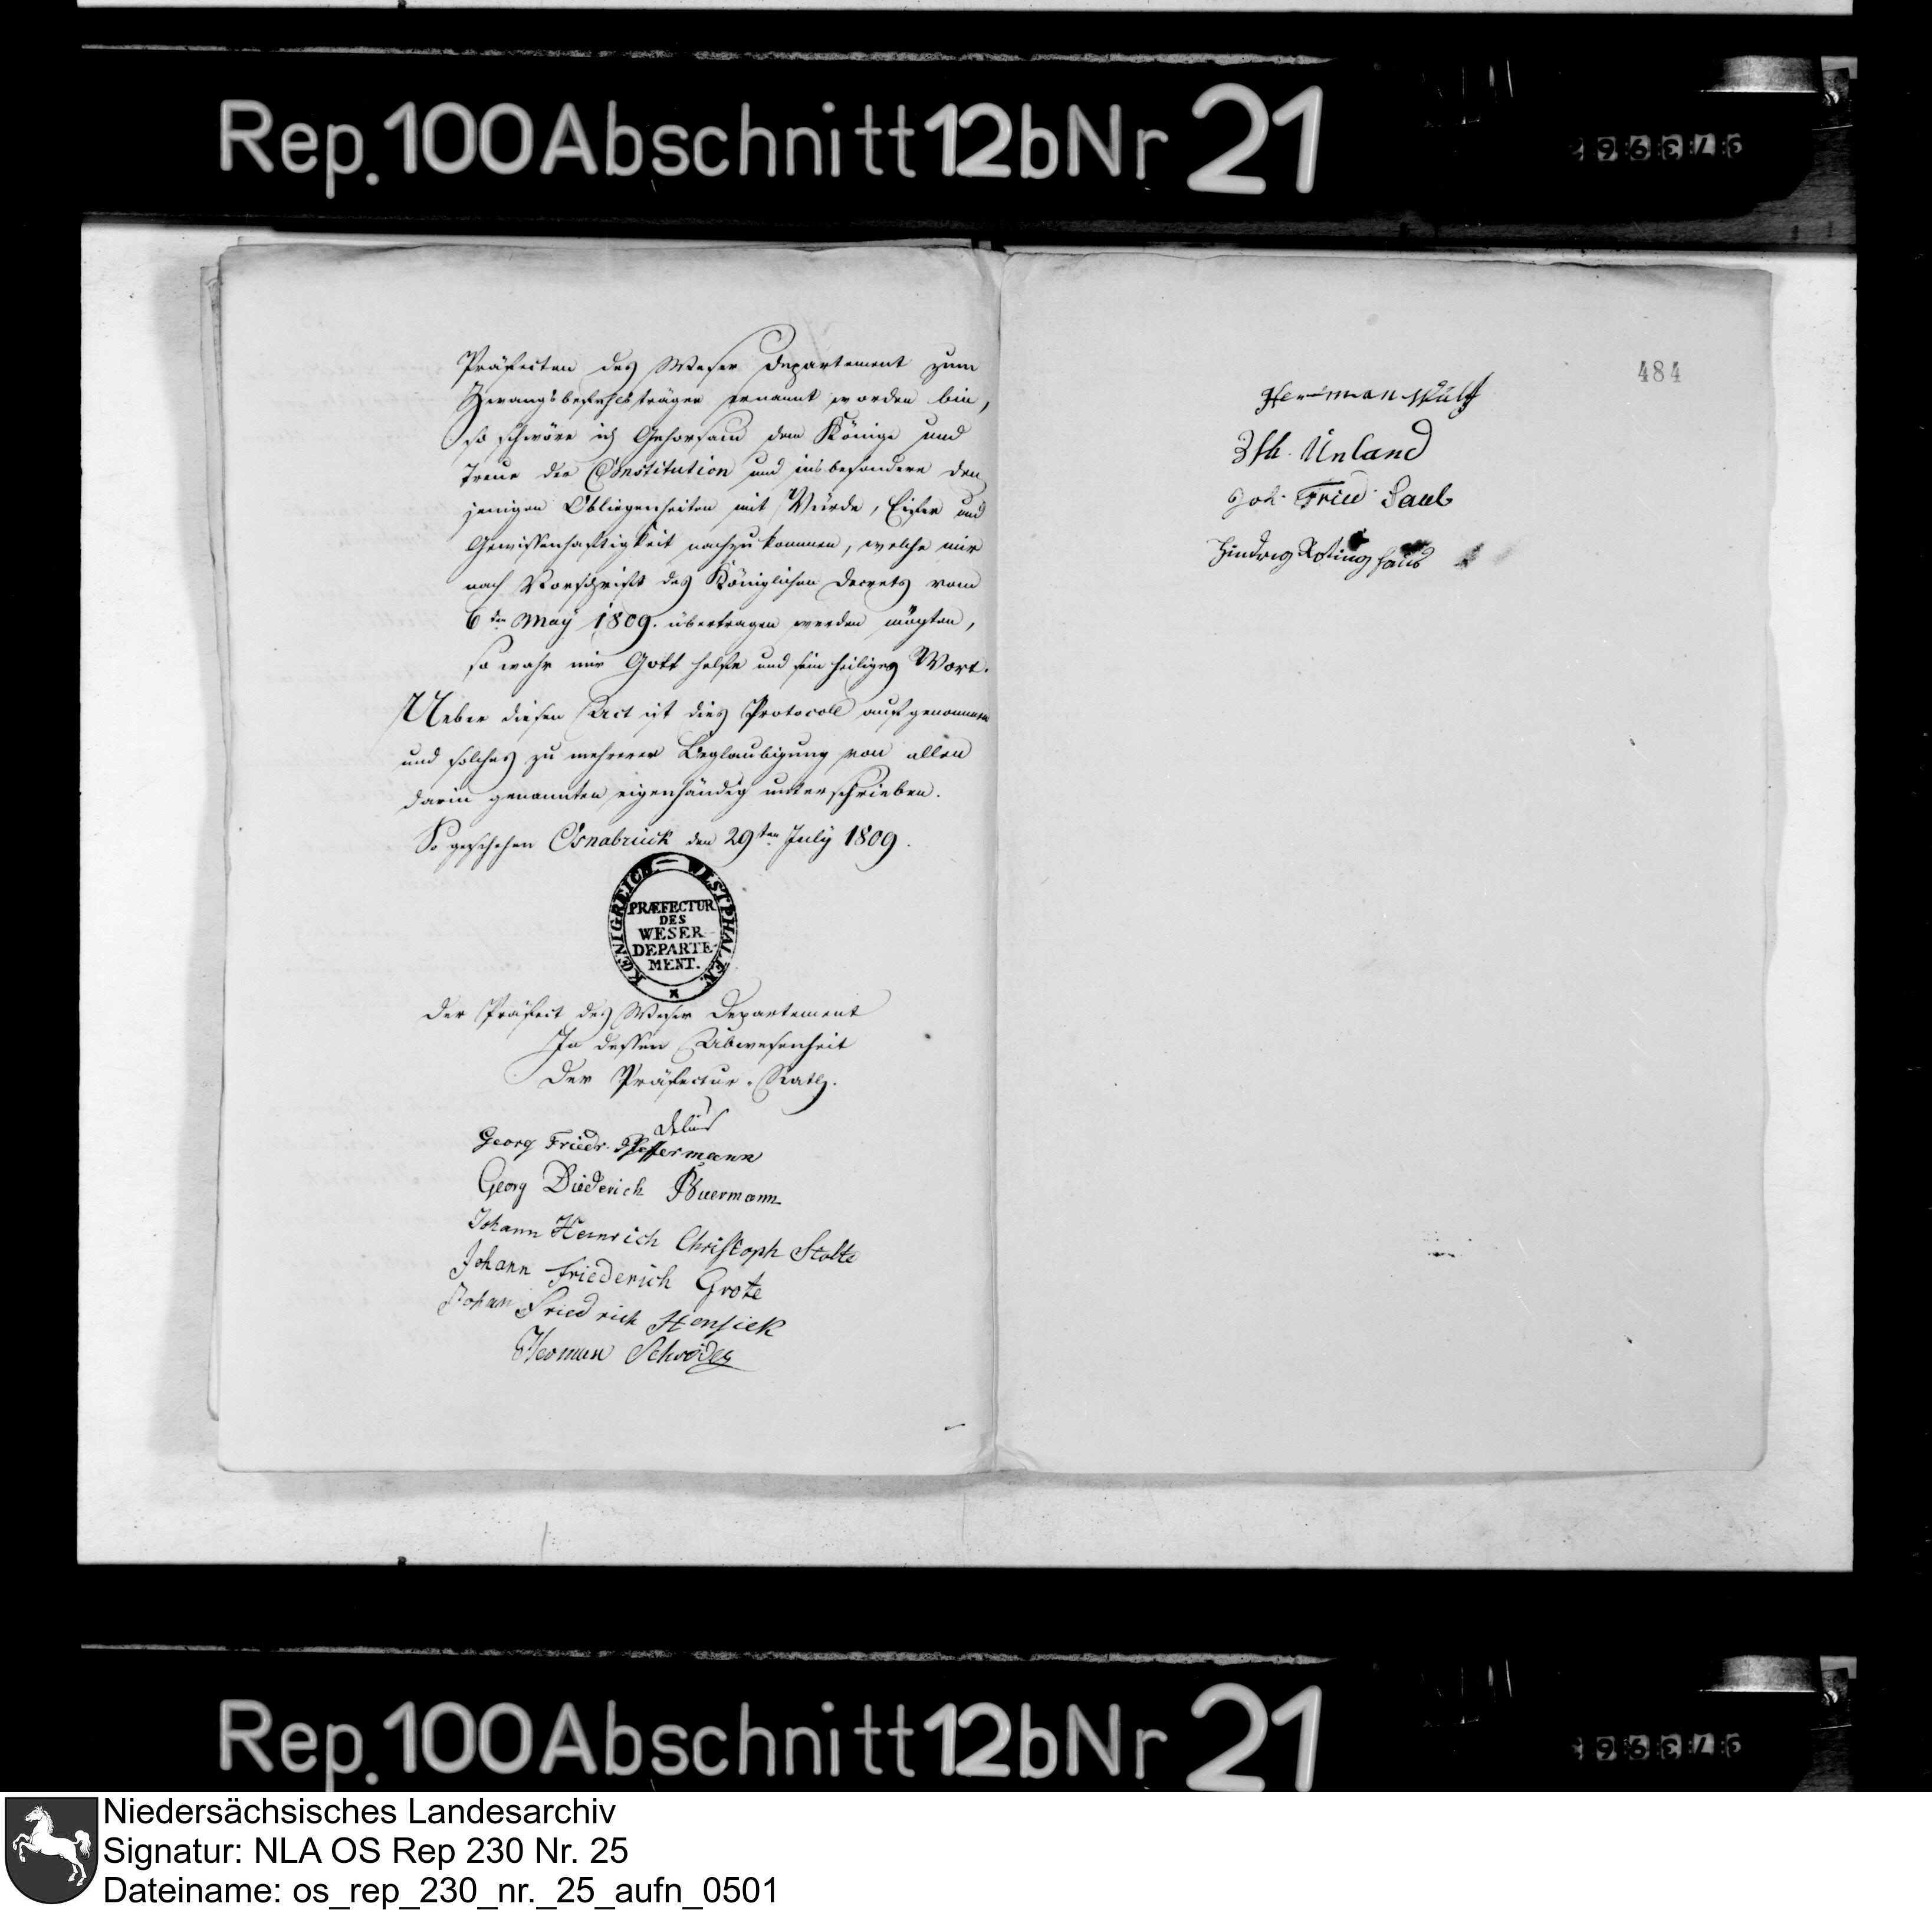 Rep. 100 Abschnitt 12b Nr 21
Präfecten des Weser Departement zum
Zwangsbefehlsträger ernannt worden bin,
so schwöre ich Gehorsam dem Könige und
Treue der Constitution und insbesondere den
jenigen Obliegenheiten mit Würde, Eifer und
Gewissenhaftigkeit nachzukommen, welche mir
nach Vorschrift des Königlichen Decrets vom
6ten May 1809. übertragen werden mögten,
so wahr mir Gott helfe und sein heiliges Wort.
Ueber diesen Act ist dies Protocoll aufgenommen
und solches zu mehrerer Beglaubigung von allen
darin genannten eigenhändig unterschrieben.
So geschehen Osnabrück den 29ten July 1809.
KŒNIGREICH WESTPHALEN
PRÆFECTUR
DES
WESER
DEPARTE-
MENT.
Der Präfect des Weser Departement
In dessen Abwesenheit
Der Präfectur-Rath.
Delius
Georg Friedr.
Georg Diederich Buermann
Johann Heinrich Christoph Stolte
Johann Friederich Grote
Johan Friedrich Hensiek
Herman Schröder
484
Herrman Wulf
Unland
Joh. Fried. Saul
Rep. 100 Abschnitt 12b Nr 21
Niedersächsisches Landesarchiv
Signatur: NLA OS Rep 230 Nr. 25
Dateiname: os_rep_230_nr._25_aufn_0501